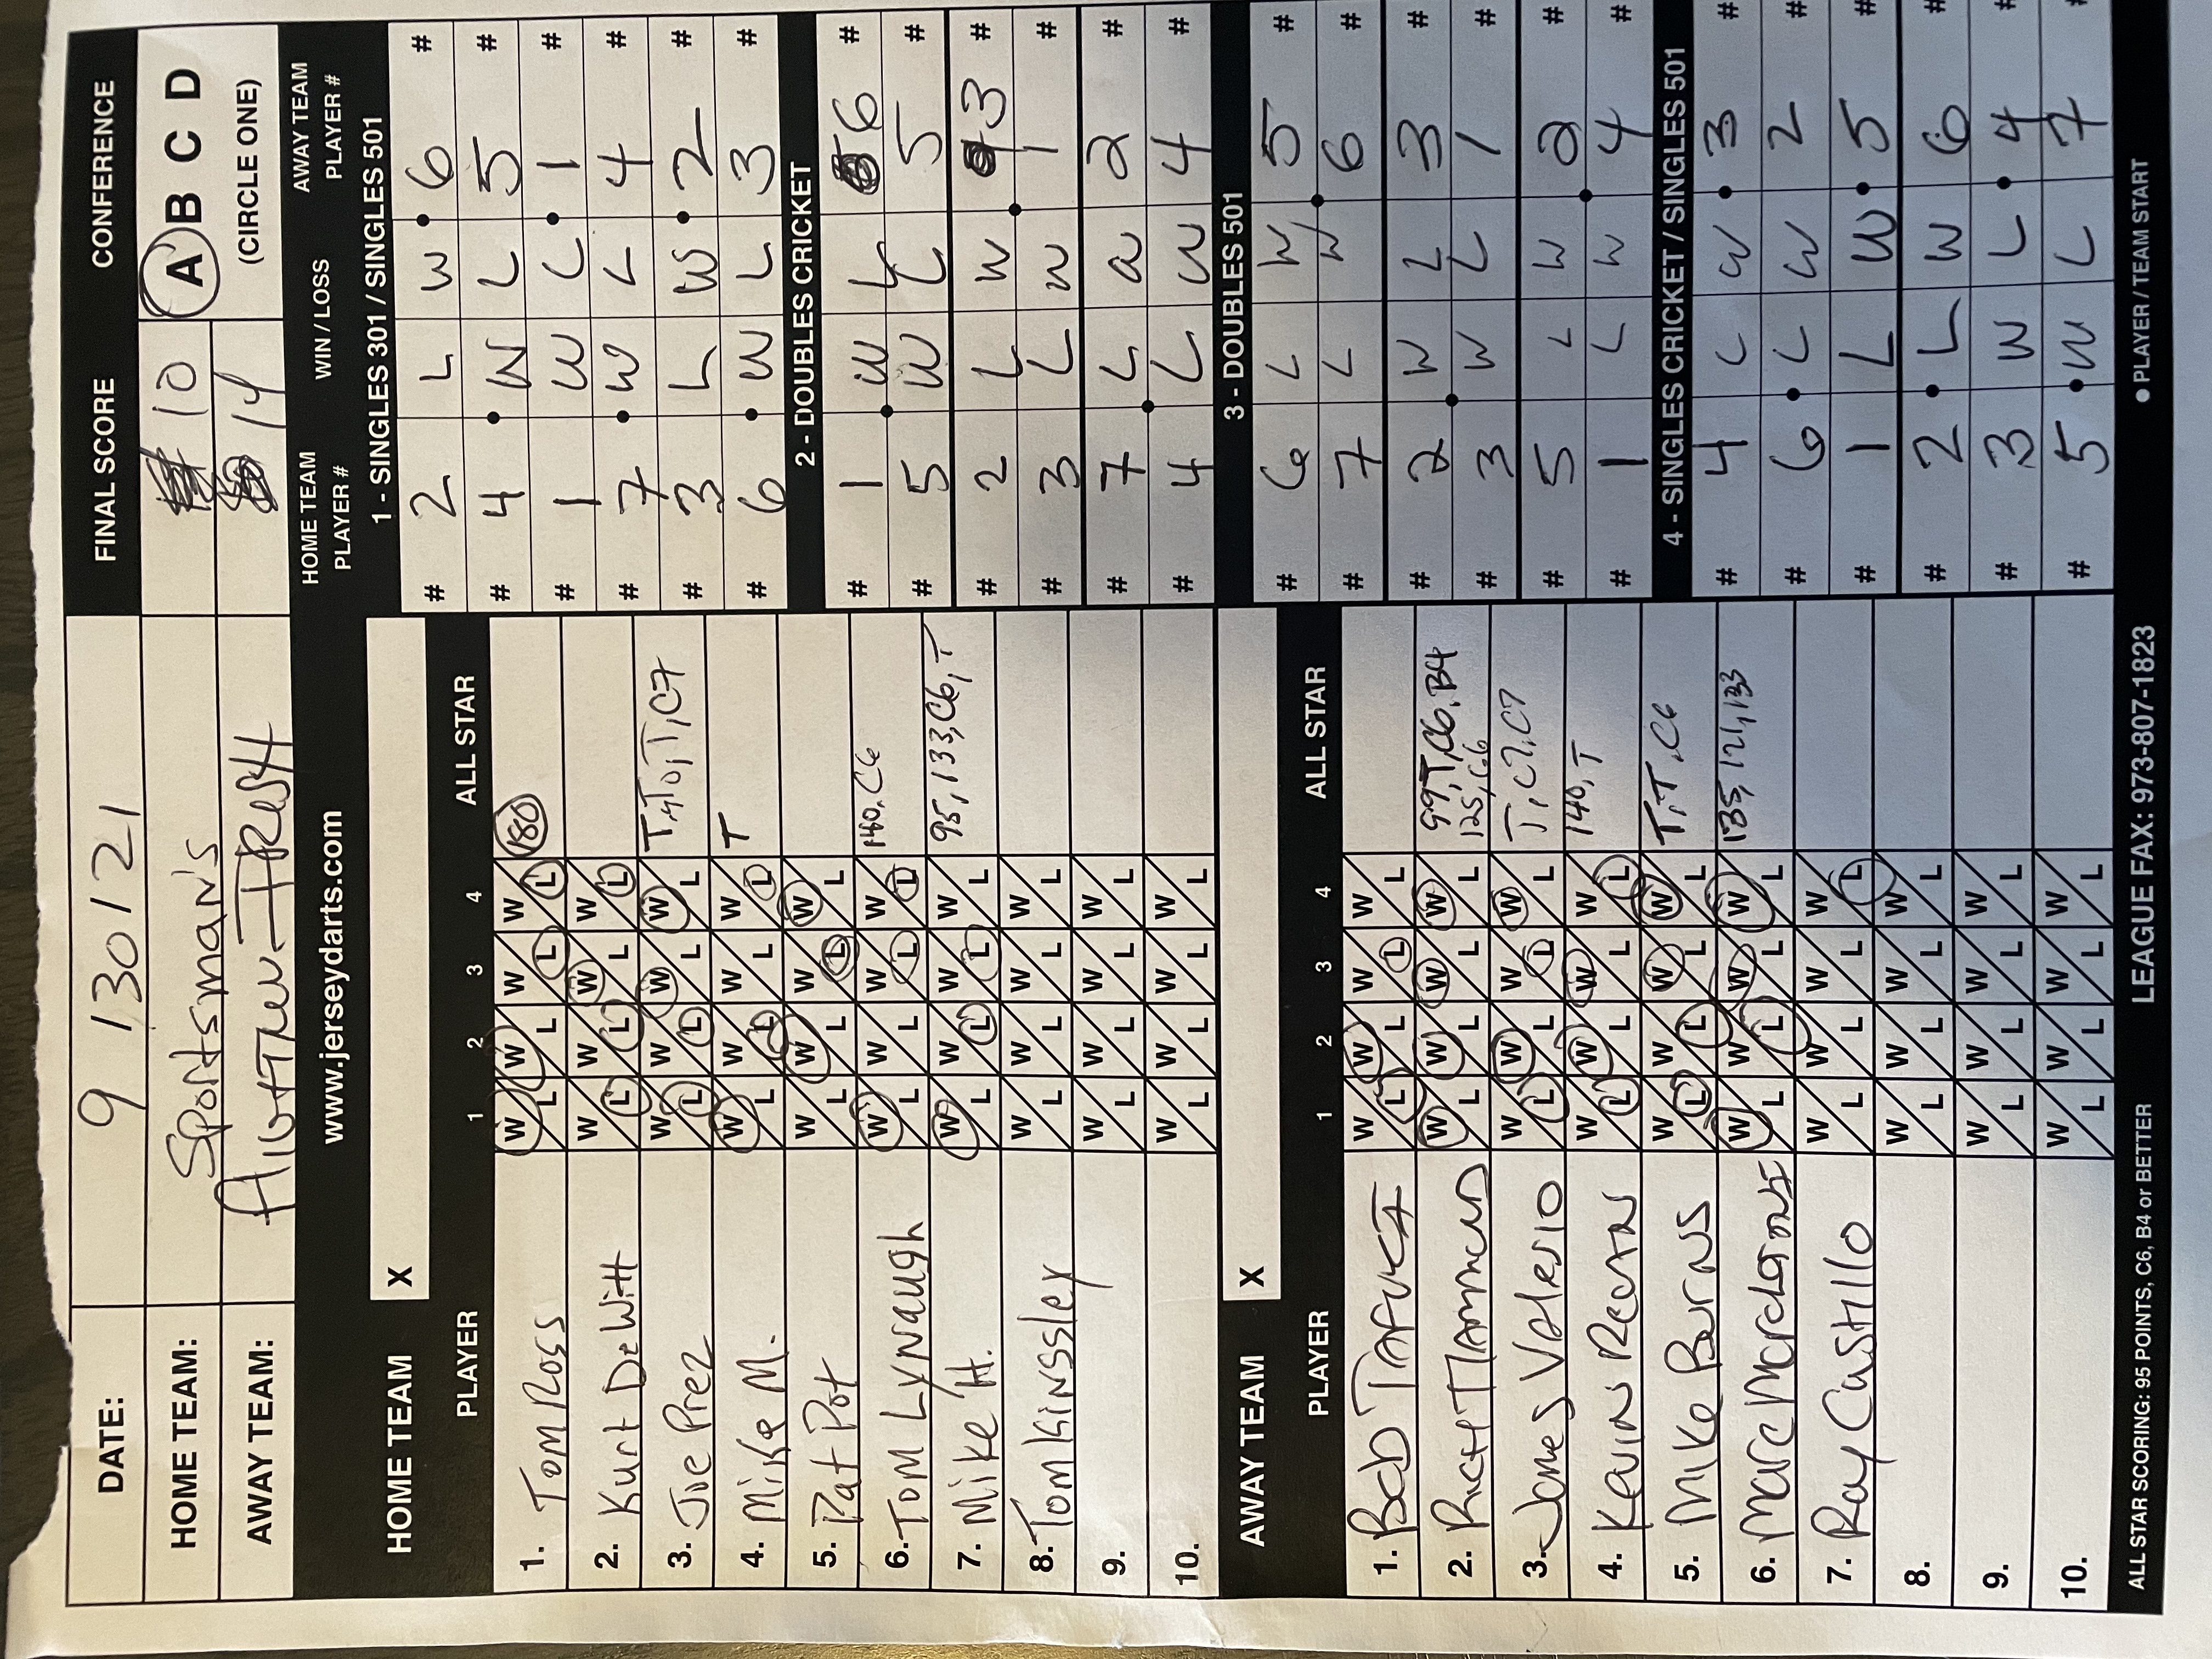 DATE: 9 13012 1 FINAL SCORE CONFERENCE
HOME TEAM: Sportsman's 10 A B C D
AWAY TEAM: 14 (CIRCLE ONE)
www.jerseydarts.com
HOME TEAM X
PLAYER 1 2 3 4 ALL STAR
1. Tom Ross W L W L W L W L 180
2. Kurt DeWitt W L W L W L W L
3. Joe Prez W L W L W L W L
4. Mike M. W L W L W L W L T
5. Pat Pot W L W L W L W L
6. Tom Lynaugh W L W L W L W L 140, C6
7. Mike H. W L W L W L W L 95, 133, C6, T
8. Tom Kinssley W L W L W L W L
9. W L W L W L W L
10. W L W L W L W L
AWAY TEAM X
PLAYER 1 2 3 4 ALL STAR
1. Bob W L W L W L W L
2. W L W L W L W L 99, T, C6, B4
125, C6
3. James Valerio W L W L W L W L T, C7, C7
4. Kevin Regan W L W L W L W L 140, T
5. Mike Burns W L W L W L W L T, T, C6
6. W L W L W L W L 135, 121, 133
7. Ray Castillo W L W L W L W L
8. W L W L W L W L
9. W L W L W L W L
10. W L W L W L W L
HOME TEAM PLAYER # WIN / LOSS AWAY TEAM PLAYER #
1 - SINGLES 301 / SINGLES 501
# 2 L W 6 #
# 4 W L 5 #
# 1 W L 1 #
# 7 W L 4 #
# 3 L W 2 #
# 6 W L 3 #
2 - DOUBLES CRICKET
# 1 W L 6 #
# 5 W L 5 #
# 2 L W 3 #
# 3 L W 1 #
# 7 L W 2 #
# 4 L W 4 #
3 - DOUBLES 501
# 6 L W 5 #
# 7 L W 6 #
# 2 W L 3 #
# 3 W L 1 #
# 5 L W 2 #
# 1 L W 4 #
4 - SINGLES CRICKET / SINGLES 501
# 4 L W 3 #
# 6 L W 2 #
# 1 L W 5 #
# 2 L W 6 #
# 3 W L 4 #
# 5 W L 7 #
ALL STAR SCORING: 95 POINTS, C6, B4 or BETTER LEAGUE FAX: 973-807-1823 ● PLAYER / TEAM START